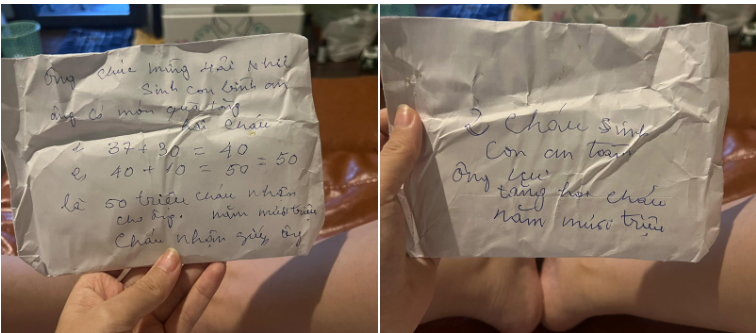 Ông chúc mừng Hải Nhi
sinh con bình an
ông có món quà tặng
hai cháu
1, 37 + 30 = 40
2, 40 + 10 = 50 = 50
là 50 triệu cháu nhận
cho ông. năm mươi triệu
cháu nhận giúp ông
2 cháu sinh
con an toàn
ông
tặng hai cháu
năm mươi triệu